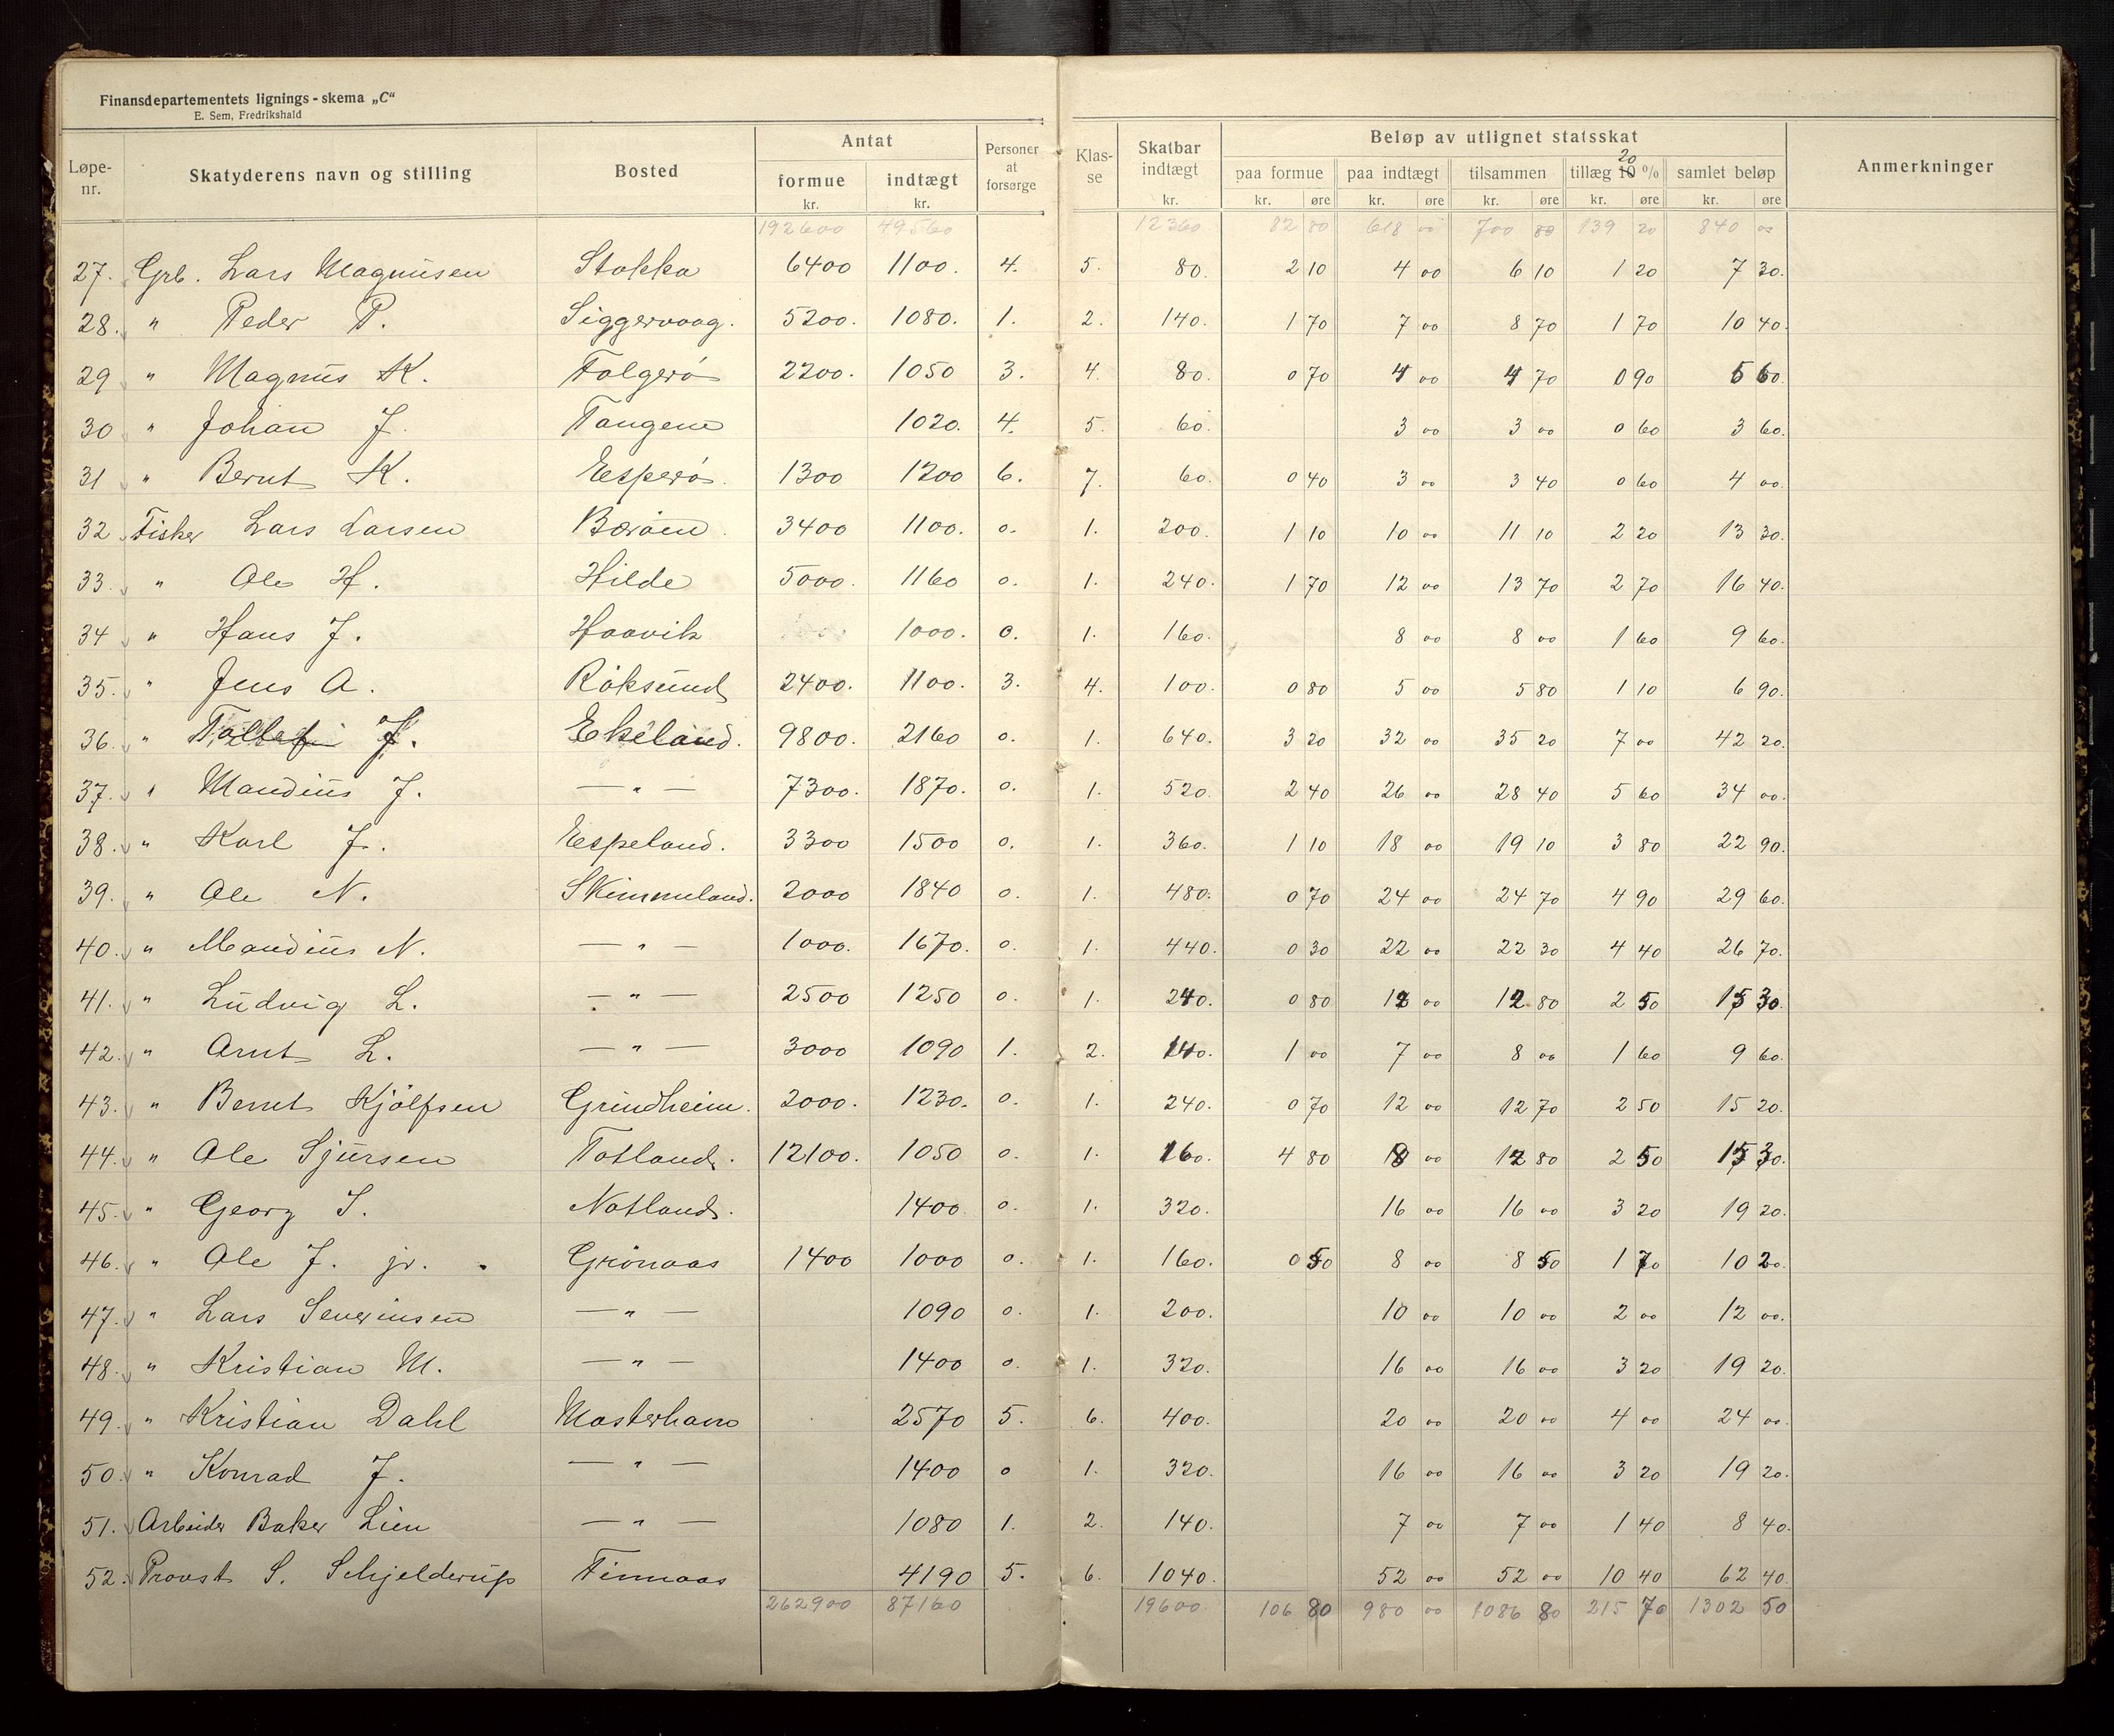 Finansdepartementets lignings-skema „C“
E. Sem, Fredrikshald
Løpe-nr. Skatyderens navn og stilling Bosted Antat formue kr. Antat indtægt kr. Personer at forsørge Klas-se Skatbar indtægt kr. Beløp av utlignet statsskat paa formue kr. øre paa indtægt kr. øre tilsammen kr. øre tillæg 20 10 % kr. øre samlet beløp kr. øre Anmerkninger
192600 49560 12360 82 80 618 00 700 80 139 20 840 00
27. Grb. Lars Magnusen Stokka 6400 1100. 4. 5. 80. 2 10 4 00 6 10 1 20 7 30.
28. " Peder P. Siggervaag. 5200. 1080. 1. 2. 140. 1 70 7 00 8 70 1 70 10 40.
29 " Magnus K. Folgerø 2200. 1050 3. 4. 80. 0 70 4 00 4 70 0 90 5 60.
30 " Johan J. Tangene 1020. 4. 5. 60. 3 00 3 00 0 60 3 60.
31 " Bernt K. Eesperø. 1300 1200 6. 7. 60. 0 40 3 00 3 40 0 60 4 00.
32. Fisker Lars Larsen Børøen. 3400 1100. 0. 1. 200. 1 10 10 00 11 10 2 20 13 30.
33. " Ole H. Hilde 5000. 1160 0. 1. 240. 1 70 12 00 13 70 2 70 16 40.
34 " Hans J. Haavik 1000. 0. 1. 160. 8 00 8 00 1 60 9 60.
35. " Jens A. Røksund 2400. 1100. 3. 4. 100. 0 80 5 00 5 80 1 10 6 90.
36. " J. Ekeland. 9800. 2160 0. 1. 640. 3 20 32 00 35 20 7 00 42 20.
37. " Mandius J. — " — 7300. 1870. 0. 1. 520. 2 40 26 00 28 40 5 60 34 00.
38. " Karl J. Eespeland. 3300 1500 0. 1. 360. 1 10 18 00 19 10 3 80 22 90.
39. " Ole N. Skimmeland. 2000 1840 0. 1. 480. 0 70 24 00 24 70 4 90 29 60.
40. " Mandius N. — " — 1000. 1670. 0. 1. 440. 0 30 22 00 22 30 4 40 26 70.
41. " Ludvig L. — " — 2500 1250 0. 1. 240. 0 80 12 00 12 80 2 50 15 30.
42. " Arnt L. — " — 3000 1090 1. 2. 140. 1 00 7 00 8 00 1 60 9 60.
43. " Bernt Kjølfsen Grindheim. 2000. 1230. 0. 1. 240. 0 70 12 00 12 70 2 50 15 20.
44. " Ole Sjursen Totland. 12100. 1050 0. 1. 160. 4 80 8 00 12 80 2 50 15 30.
45. " Georg S. Notland. 1400 0. 1. 320. 16 00 16 00 3 20 19 20.
46. " Ole J. jr. Grönaas 1400 1000 0. 1. 160. 0 50 8 00 8 50 1 70 10 20.
47. " Lars Severinsen — " — 1090 0. 1. 200. 10 00 10 00 2 00 12 00.
48. " Kristian M. — " — 1400 0. 1. 320. 16 00 16 00 3 20 19 20.
49. " Kristian Dahl Mosterhavn 2570 5. 6. 400. 20 00 20 00 4 00 24 00.
50. " Konrad J. — " — 1400 0 1. 320. 16 00 16 00 3 20 19 20.
51. Arbeider Baker Lien — " — 1080 1. 2. 140. 7 00 7 00 1 40 8 40.
52. Provst S. Schjelderup Finnaas 4190 5. 6. 1040. 52 00 52 00 10 40 62 40.
262900 87160 19600 106 80 980 00 1086 80 215 70 1302 50